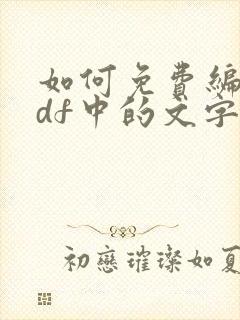 如何免费编
df中的文字
初戀璀璨如夏